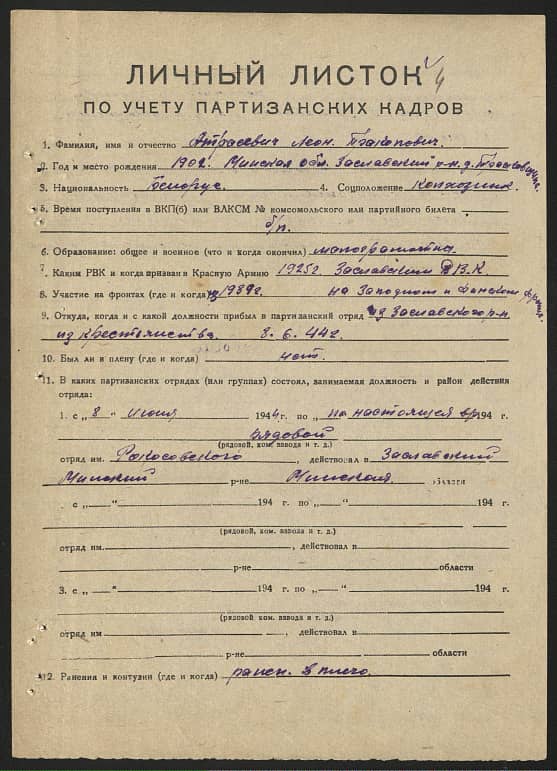 ЛИЧНЫЙ ЛИСТОК
4
ПО УЧЕТУ ПАРТИЗАНСКИХ КАДРОВ
1. Фамилия, имя и отчество Атрасевич Леон. Пракопович.
2. Год и место рождения 1902. Минская обл. Заславский р-н. д.
3. Национальность Белорус. 4. Соцположение Колхозник.
5. Время поступления в ВКП(б) или ВЛКСМ № комсомольского или партийного билета
б/п.
6. Образование: общее и военное (что и когда окончил) малограмотна.
7. Каким РВК и когда призван в Красную Армию 1925г. Заславским РВ.К.
8. Участие на фронтах (где и когда) 1939г. на Западном и Финском фронте.
9. Откуда, когда и с какой должности прибыл в партизанский отряд из Заславского р-н.
из крестьянства. 8. 6. 44г.
10. Был ли в плену (где и когда) нет.
11. В каких партизанских отрядах (или группах) состоял, занимаемая должность и район действия
отряда:
1. с „ 8 “ Июня 1944 г. по „ на настоящея вр. 194 г.
рядовой
(рядовой, ком. взвода и т. д.)
отряд им. Ракосовского, действовал в Заславский
Минский р-не Минская области
. с „ “ 194 г. по „ “ 194 г.
(рядовой, ком. взвода и т. д.)
отряд им. , действовал в
р-не области
3. с „ “ 194 г. по „ “ 194 г.
(рядовой, ком. взвода и т. д.)
отряд им , действовал в
р-не области
12. Ранения и контузии (где и когда) ранен. в плечо.